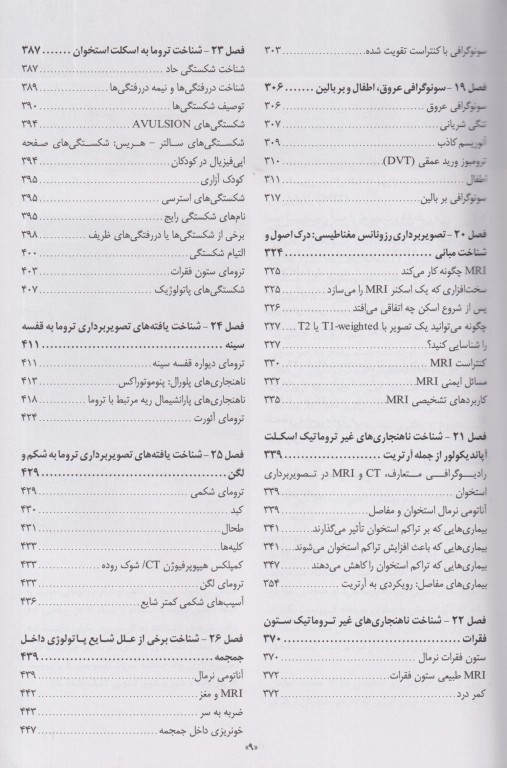 سونوگرافی با کنتراست تقویت شده ..... ۳۰۳
فصل ۱۹ - سونوگرافی عروق، اطفال و بر بالین ....... ۳۰۶
سونوگرافی عروق ..... ۳۰۶
تنگی شریانی ..... ۳۰۷
آنوریسم کاذب ..... ۳۰۹
ترومبوز ورید عمقی (DVT) ..... ۳۱۰
اطفال ..... ۳۱۱
سونوگرافی بر بالین ..... ۳۱۷
فصل ۲۰ - تصویربرداری رزونانس مغناطیسی: درک اصول و
شناخت مبانی ..... ۳۲۴
MRI چگونه کار می‌کند ..... ۳۲۵
سخت‌افزاری که یک اسکنر MRI را می‌سازد ..... ۳۲۵
پس از شروع اسکن چه اتفاقی می‌افتد ..... ۳۲۶
چگونه می‌توانید یک تصویر با T1-weighted یا T2 ..... ۳۲۷
را شناسایی کنید؟ ..... ۳۲۷
کنتراست MRI ..... ۳۳۰
مسائل ایمنی MRI ..... ۳۳۲
کاربردهای تشخیصی MRI ..... ۳۳۵
فصل ۲۱ - شناخت ناهنجاری‌های غیر تروماتیک اسکلت
آپاندیکولور از جمله آرتریت ..... ۳۳۹
رادیوگرافی متعارف، CT و MRI در تصویربرداری
استخوان ..... ۳۳۹
آناتومی نرمال استخوان و مفاصل ..... ۳۳۹
بیماری‌هایی که بر تراکم استخوان تأثیر می‌گذارند ..... ۳۴۱
بیماری‌هایی که باعث افزایش تراکم استخوان می‌شوند ..... ۳۴۱
بیماری‌هایی که تراکم استخوان را کاهش می‌دهند ..... ۳۴۷
بیماری‌های مفاصل: رویکردی به آرتریت ..... ۳۵۴
فصل ۲۲ - شناخت ناهنجاری‌های غیر تروماتیک ستون
فقرات ..... ۳۷۰
ستون فقرات نرمال ..... ۳۷۰
MRI طبیعی ستون فقرات ..... ۳۷۲
کمر درد ..... ۳۷۲
فصل ۲۳ - شناخت تروما به اسکلت استخوان ....... ۳۸۷
شناخت شکستگی حاد ..... ۳۸۷
شناخت دررفتگی‌ها و نیمه دررفتگی‌ها ..... ۳۸۹
توصیف شکستگی‌ها ..... ۳۹۰
شکستگی‌های AVULSION ..... ۳۹۴
شکستگی‌های سالتر - هریس: شکستگی‌های صفحه
اپی‌فیزیال در کودکان ..... ۳۹۴
کودک آزاری ..... ۳۹۵
شکستگی‌های استرسی ..... ۳۹۵
نام‌های شکستگی رایج ..... ۳۹۵
برخی از شکستگی‌ها یا دررفتگی‌های ظریف ..... ۳۹۸
التیام شکستگی ..... ۴۰۰
ترومای ستون فقرات ..... ۴۰۳
شکستگی‌های پاتولوژیک ..... ۴۰۷
فصل ۲۴ - شناخت یافته‌های تصویربرداری تروما به قفسه
سینه ..... ۴۱۱
ترومای دیواره قفسه سینه ..... ۴۱۱
ناهنجاری‌های پلورال: پنوموتوراکس ..... ۴۱۳
ناهنجاری‌های پارانشیمال ریه مرتبط با تروما ..... ۴۱۸
ترومای آئورت ..... ۴۲۴
فصل ۲۵ - شناخت یافته‌های تصویربرداری تروما به شکم و
لگن ..... ۴۲۹
ترومای شکمی ..... ۴۲۹
کبد ..... ۴۳۰
طحال ..... ۴۳۱
کلیه‌ها ..... ۴۳۳
کمپلکس هیپوپرفیوژن CT/ شوک روده ..... ۴۳۳
ترومای لگن ..... ۴۳۳
آسیب‌های شکمی کمتر شایع ..... ۴۳۶
فصل ۲۶ - شناخت برخی از علل شایع پاتولوژی داخل
جمجمه ..... ۴۳۹
آناتومی نرمال ..... ۴۳۹
MRI و مغز ..... ۴۴۲
ضربه به سر ..... ۴۴۳
خونریزی داخل جمجمه ..... ۴۴۷
«۹»